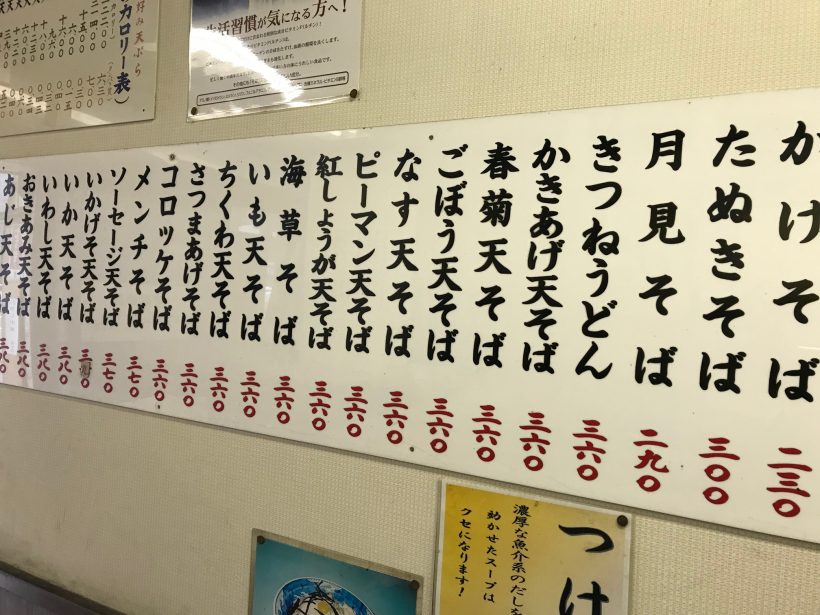 かけそば 二三〇
たぬきそば 三〇〇
月見そば 二九〇
きつねうどん 三六〇
かきあげ天そば 三六〇
春菊天そば 三六〇
ごぼう天そば 三六〇
なす天そば 三六〇
ピーマン天そば 三六〇
紅しょうが天そば 三六〇
海草そば 三六〇
いも天そば 三六〇
ちくわ天そば 三六〇
さつまあげそば 三六〇
コロッケそば 三六〇
メンチそば 三七〇
ソーセージ天そば 三七〇
いかげそ天そば
いか天そば 三八〇
いわし天そば 三八〇
おきあみ天そば 三八〇
あじ天そば 三八〇
好み天ぷら
カロリー表
活習慣が気になる方へ!
つけ
濃厚な魚介系のだしを
効かせたスープは
クセになります!